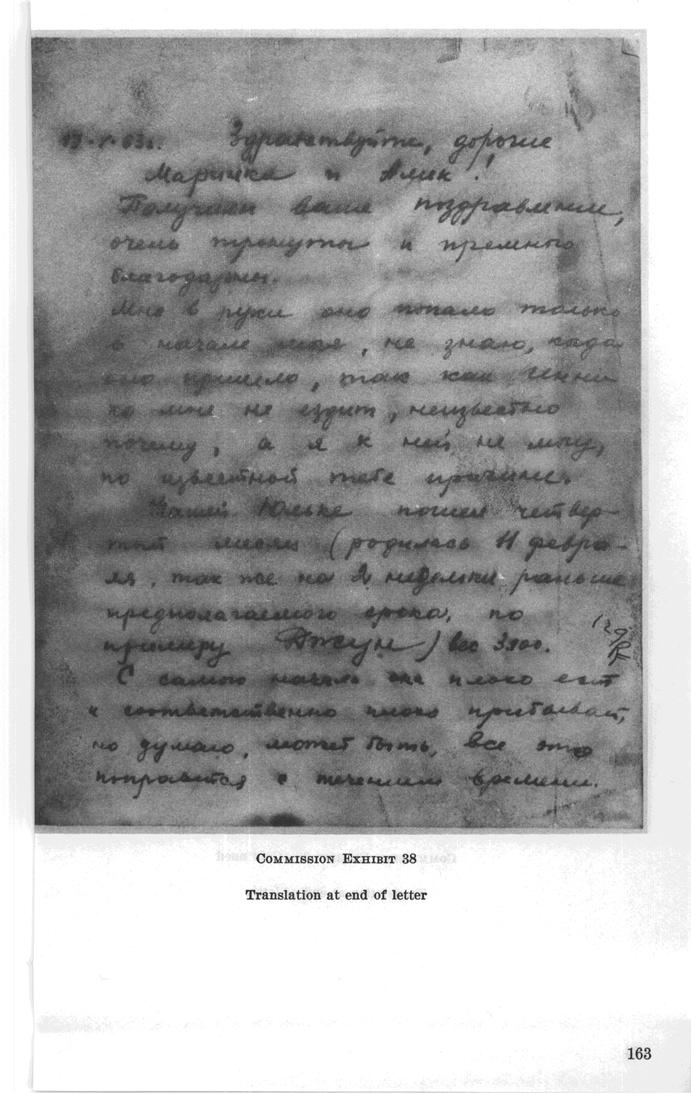 19-V-63г. Здравствуйте, дорогие
Маричка и Алик!
Получили ваше поздравление,
очень тронуты и премного
благодарны.
Мне в руки оно попало только
в начале мая, не знаю, когда
оно пришло, так как Инна
ко мне не ездит, неизвестно
почему, а я к ней не могу,
по известной тебе причине.
Нашей Юльке пошел четвер-
тый месяц (родилась 11 февра-
ля, так же на 2 недельки раньше
предполагаемого срока, по
примеру Джун) вес 3900.
С самого начала она плохо ест
и соответственно плохо прибавляет,
но думаю, может быть, все это
поправится с течением времени.
COMMISSION EXHIBIT 38
Translation at end of letter
163